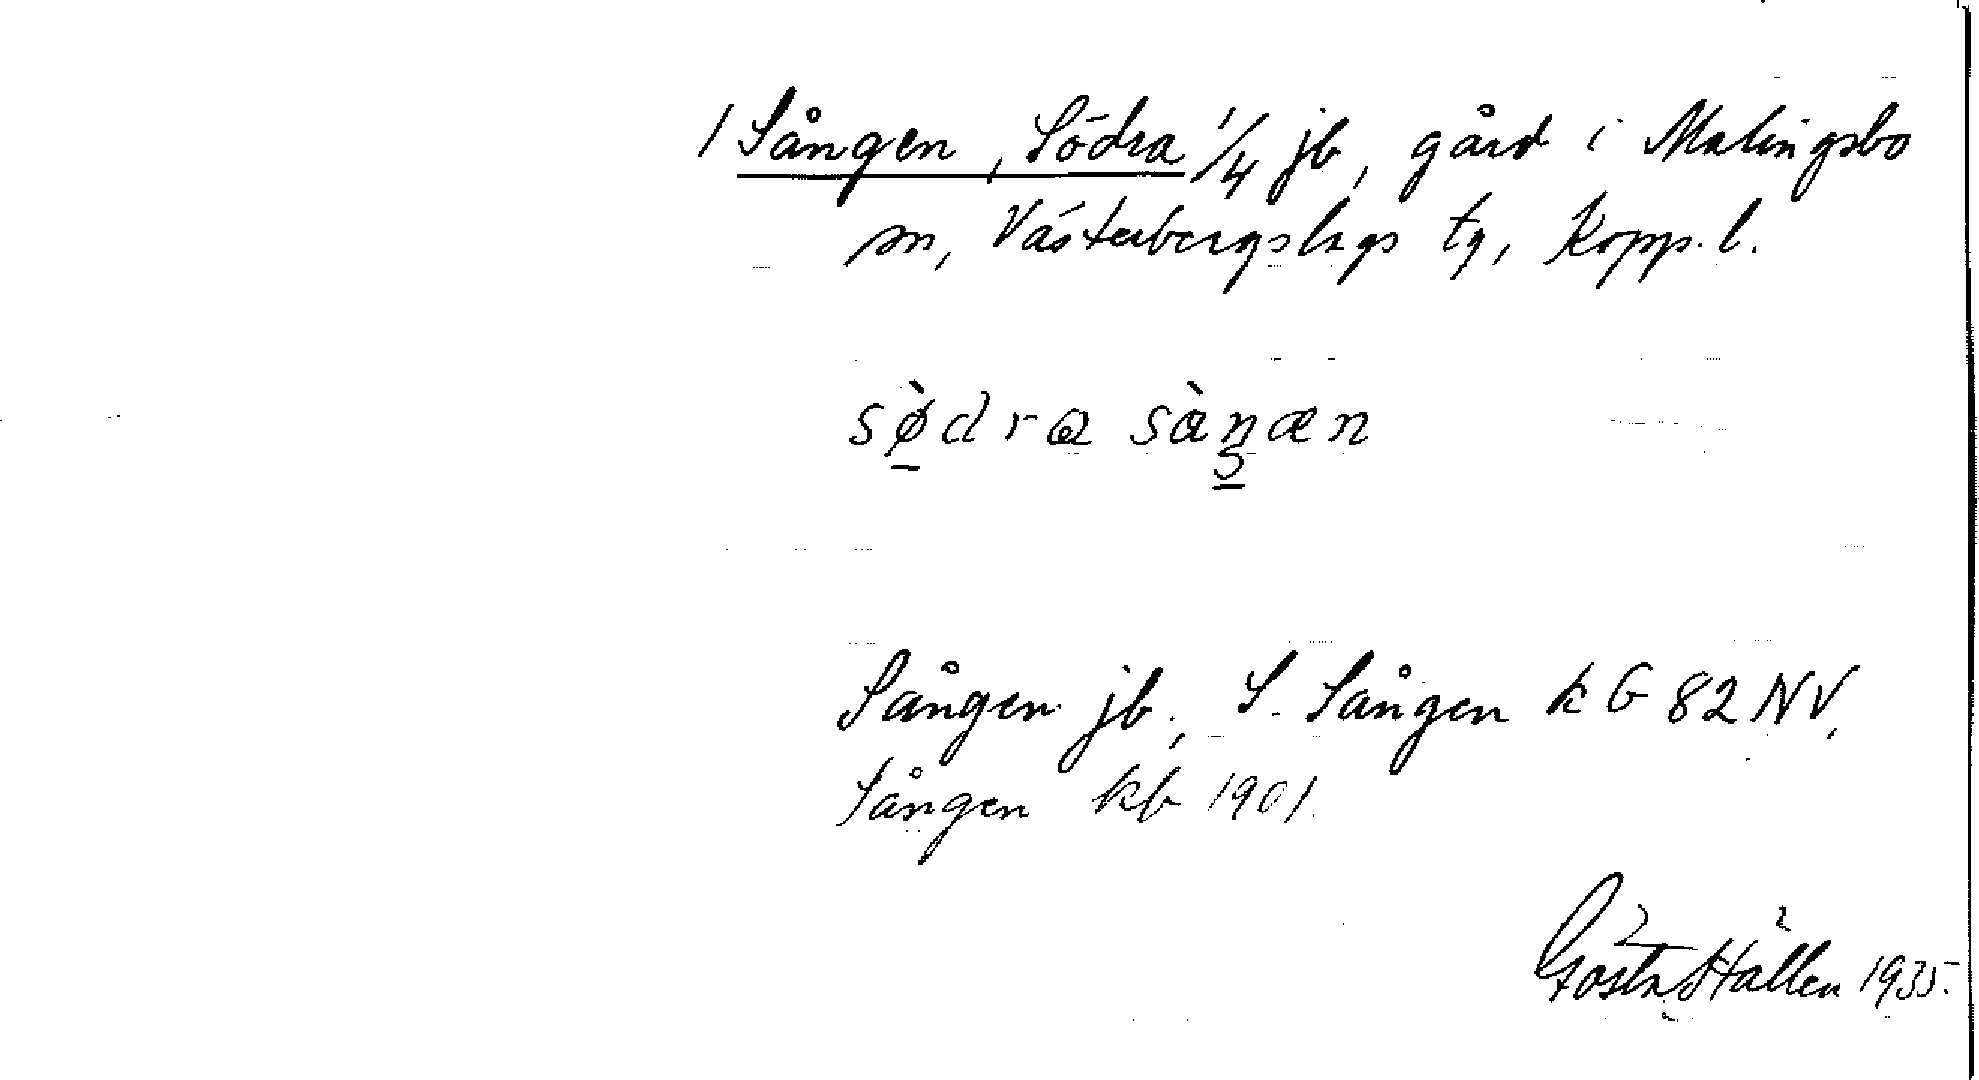 1 Sången, Södra 1/4 jb, gård i Malingsbo
sn, Västerbergslags tg, Kopp. l.
sø̀dra sàŋæn
Sången jb., S. Sången k G 82 NV,
Sången kb 1901.
Gösta Hällen 1935.